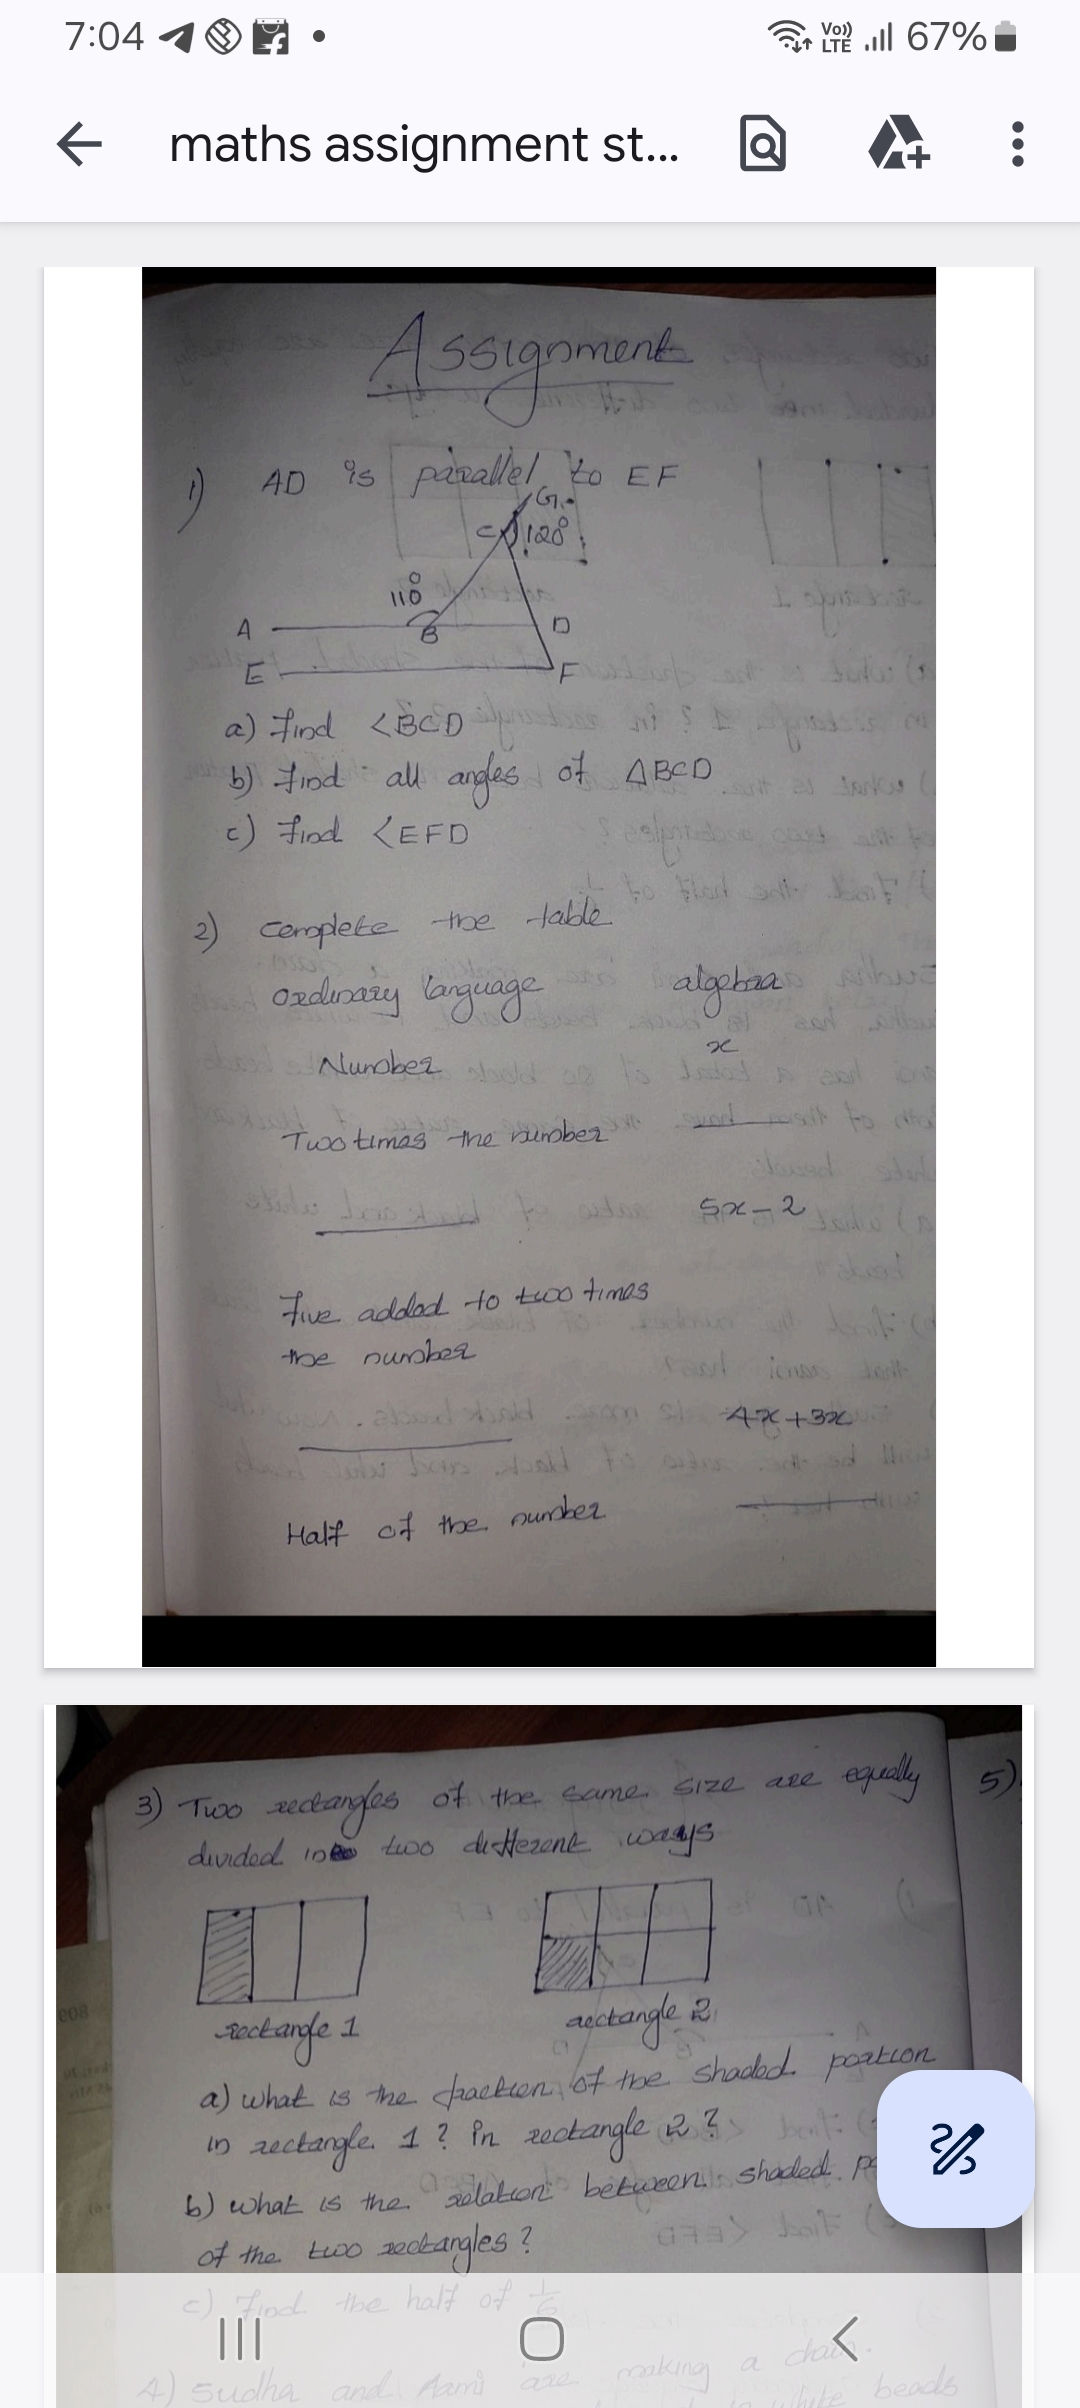 7:04 Vo)) LTE 67%
maths assignment st...
Assignment
1) AD is parallel to EF
G
C 120°
110°
A B D
E F
a) Find <BCD
b) Find all angles of △BCD
c) Find <EFD
2) Complete the table
Ordinary language algebra
Number x
Two times the number
5x-2
Five added to two times
the number
4x+3x
Half of the number
3) Two rectangles of the same size are equally 5)
divided into two different ways
rectangle 1 rectangle 2
a) what is the fraction of the shaded portion
in rectangle 1? in rectangle 2?
b) what is the relation between shaded
of the two rectangles?
c) Find the half of 1/6
4) Sudha and Rami are making a chain.
white beads